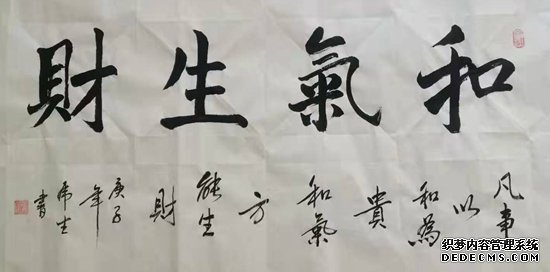 和氣生財
凡事以和為貴和氣方能生財
庚子年
生書
织梦内容管理系统
DEDECMS.COM